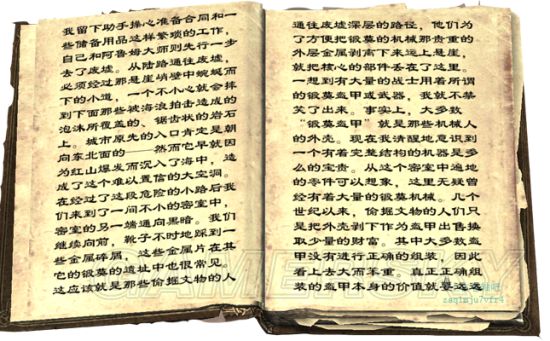 我留下助手操心准备合同和一
些储备用品这样繁琐的工作，
自己和阿鲁姆大师则先行一步
去了废墟。从陆路通往废墟，
必须经过那悬崖峭壁中蜿蜒而
下的小道，一个不小心就会摔
到下面那些被海浪拍击造成的
泡沫所覆盖的、锯齿状的岩石
上。城市原先的入口肯定是朝
向东北面的——然而它早就因
为红山爆发而沉入了海中，造
成了这个难以置信的大空洞。
在经过了这段危险的小路后我
们来到了一间不小的密室中，
密室的另一端通向黑暗。我们
继续向前，靴子不时地踩到一
些金属碎屑，这些金属片在其
它的锻莫的遗址中也很常见，
这应该就是那些偷掘文物的人
通往废墟深层的路径，他们为
了方便把锻莫的机械那贵重的
外层金属剥离下来运上悬崖，
就把核心的部件丢在了这里。
一想到有大量的战士用着所谓
的锻莫盔甲或武器，我就不禁
笑了出来。事实上，大多数
“锻莫盔甲”就是那些机械人
的外壳。现在我清醒地意识到
一个有着完整结构的机器是多
么的宝贵。从这个密室中遍地
的零件可以想象，这里无疑曾
经有着大量的锻莫机械。几个
世纪以来，偷掘文物的人们只
是把外壳剥下作为盔甲出售换
取少量的财富。其中大多数盔
甲没有进行正确的组装，因此
看上去大而笨重，真正正确组
装的盔甲本身的价值就要远远
GAMERSKY
zaq1mju7vfr4